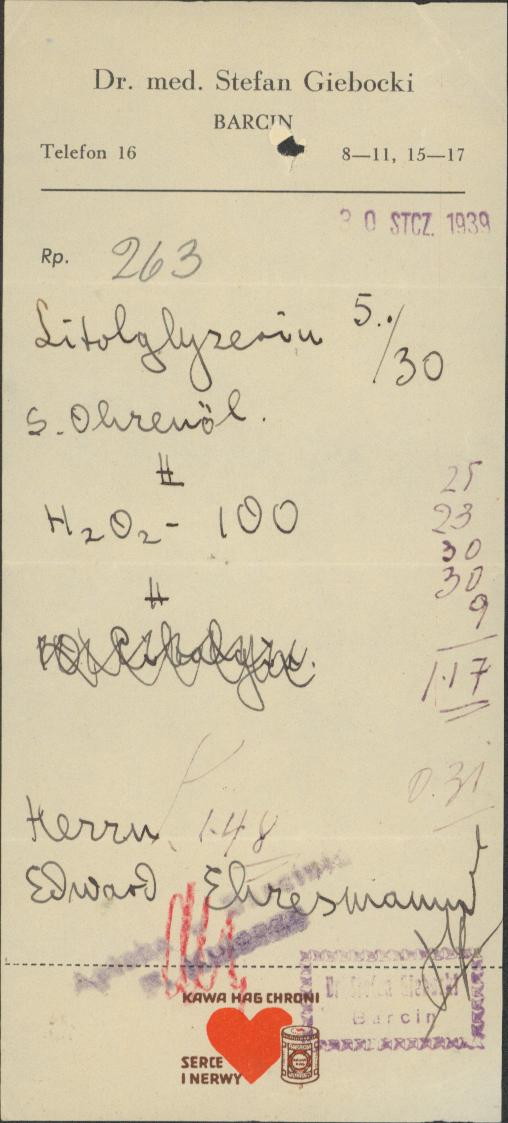 Dr. med. Stefan Giebocki
BARCIN
Telefon 16 8—11, 15—17
30 STCZ. 1939
Rp. 263
Litolglyzerin 5./30
S. Ohrenöl.
#
H2O2 - 100
#
25
23
30
30
9
1.17
0.31
Herrn 1.48
Edward Ehresmann
Apteka
KAWA HAG CHRONI
SERCE
I NERWY
Dr. Stefan Giebocki
Barcin